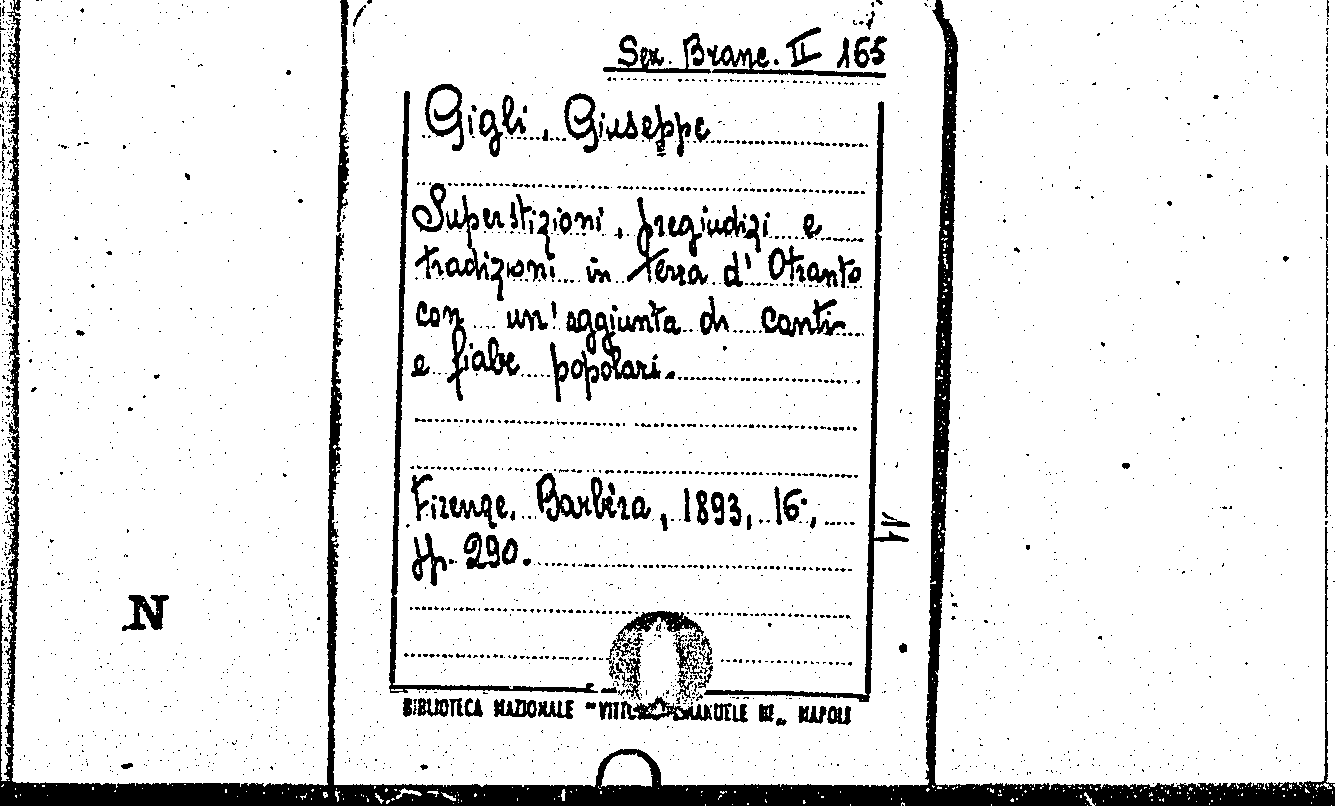 Sez. Branc. II 165
Gigli, Giuseppe
Superstizioni, pregiudizi e
tradizioni in terra d'Otranto
con un'aggiunta di canti
e fiabe popolari.
Firenze, Barbèra, 1893, 16°,
pp. 290.
11
N
BIBLIOTECA NAZIONALE "VITTORIO EMANUELE III„ NAPOLI